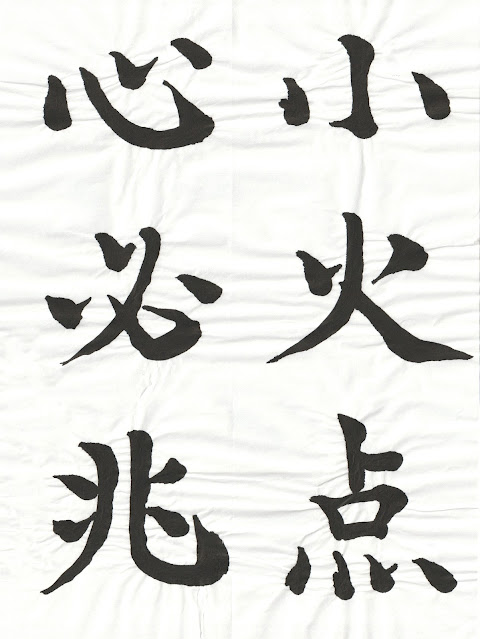 小火点
心必兆